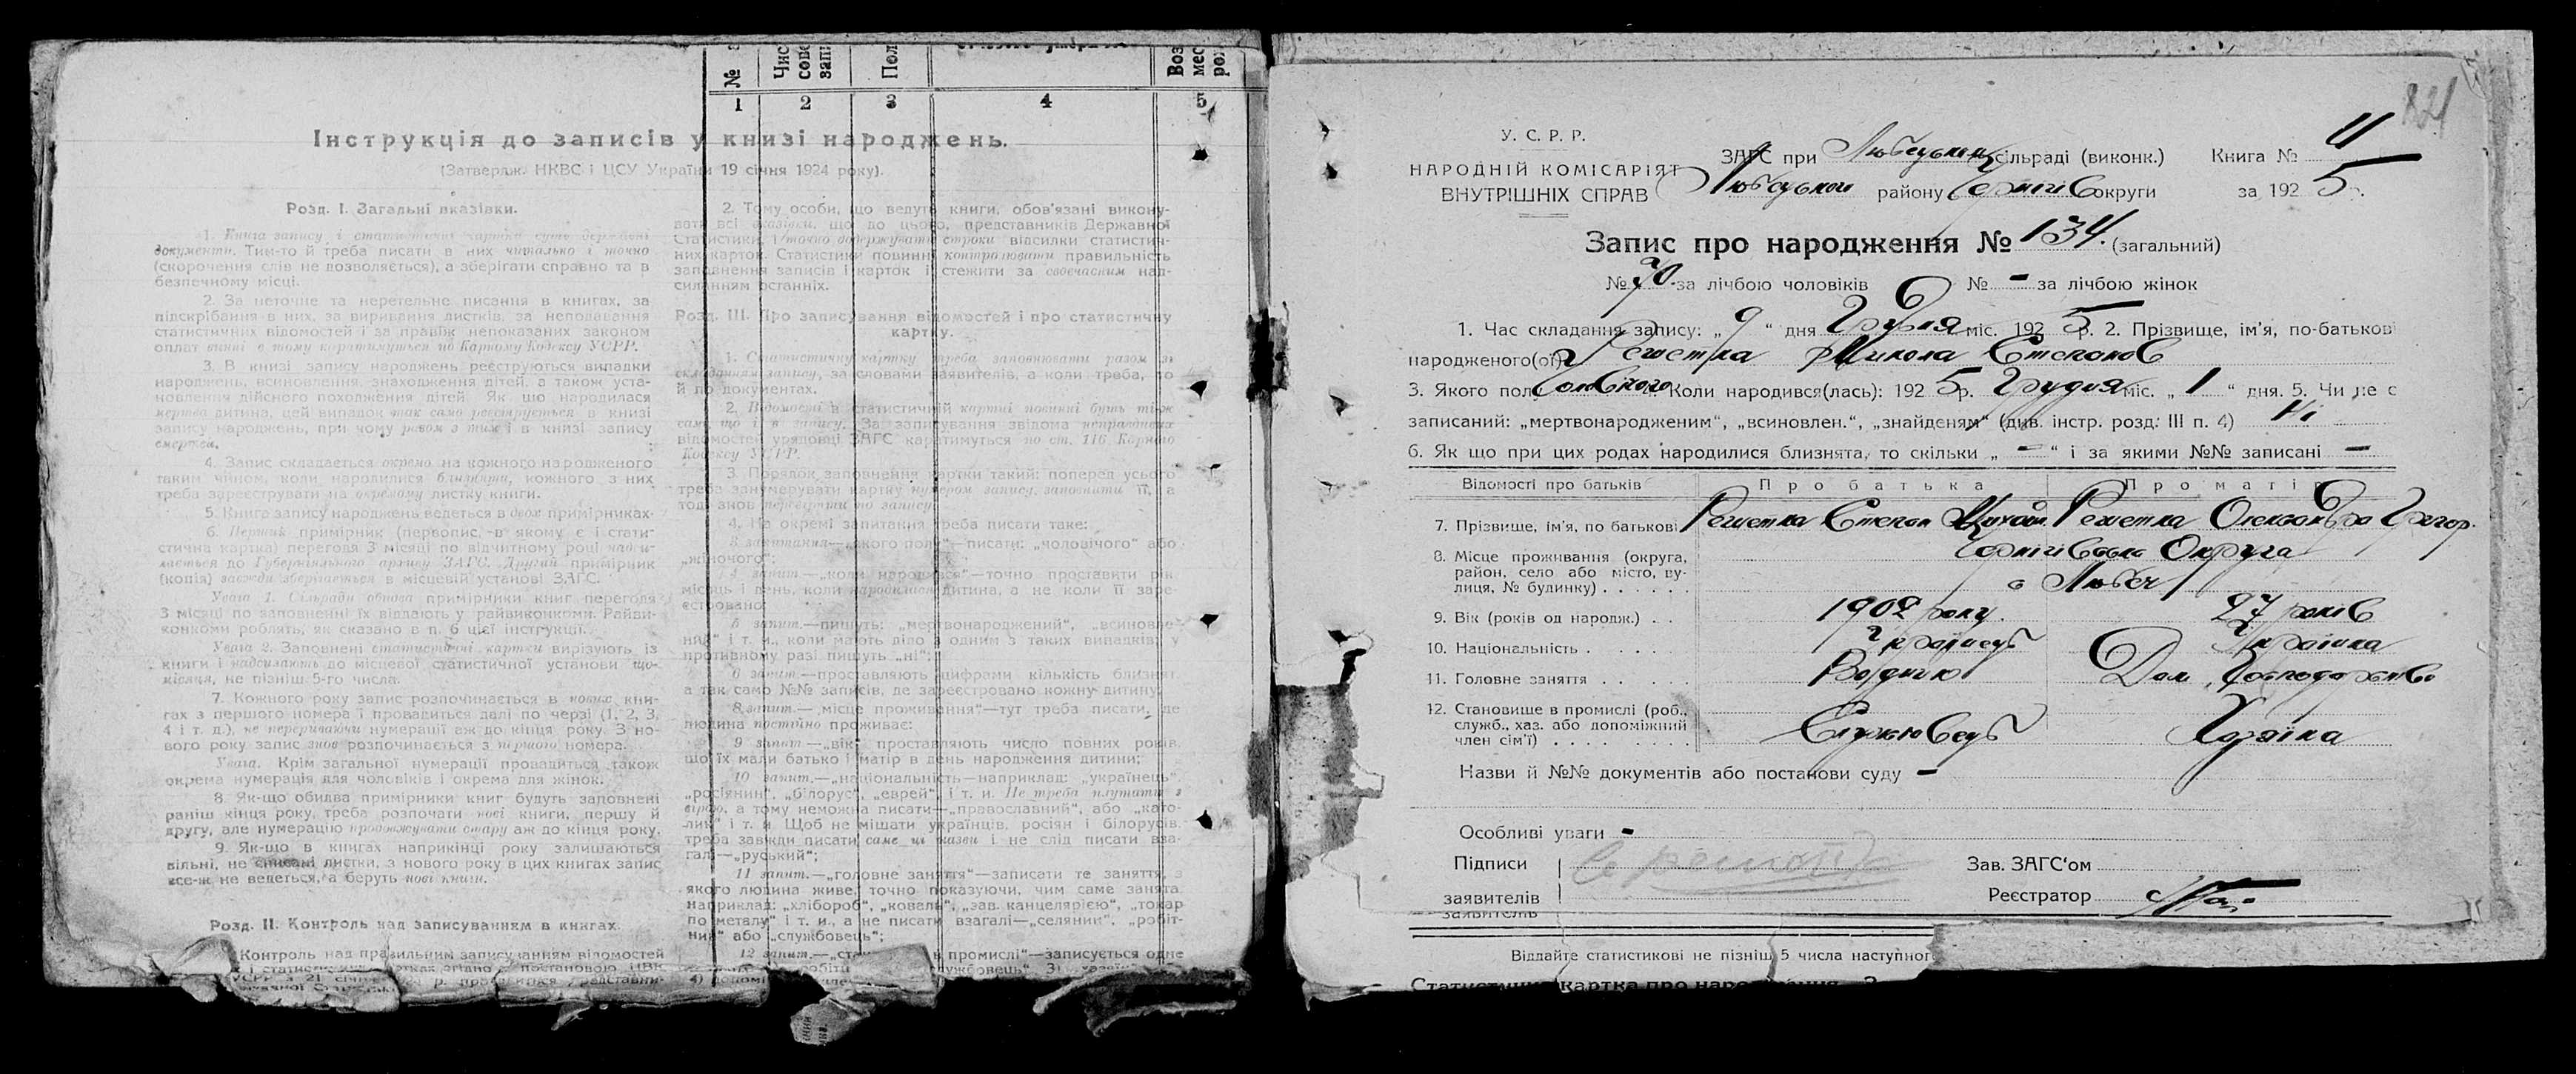 №
Пол
1 2 3 4 5
Інструкція до записів у книзі народжень.
(Затвердж. НКВС і ЦСУ України 19 січня 1924 року).
Розд. I. Загальні вказівки.
1. Книга запису і статистична картка суть державні
документи. Тим-то й треба писати в них читально і точно
(скорочення слів не дозволяється), а зберігати справно та в
безпечному місці.
2. За неточне та неретельне писання в книгах, за
підскрібання в них, за виривання листків, за неподавання
статистичних відомостей і за правіж непоказаних законом
оплат винні в тому каратимуться по Карному Кодексу УСРР.
3. В книзі запису народжень реєструються випадки
народжень, всиновлення, знаходження дітей, а також уста-
новлення дійсного походження дітей. Як що народилася
мертва дитина, цей випадок так само реєструється в книзі
запису народжень, при чому разом з тим і в книзі запису
смертей.
4. Запис складається окремо на кожного народженого
таким чином, коли народилися близнята, кожного з них
треба зареєструвати на окремому листку книги.
5. Книга запису народжень ведеться в двох примірниках.
6. Первий примірник (первопис, в якому є і стати-
стична картка) переголя 3 місяці по відчитному році
до Губерніяльного архиву ЗАГС. Другий примірник
(копія) завжди зберігається в місцевій установі ЗАГС.
Увага 1. Сільради обидва примірники книг переголя
3 місяці по заповненні їх віддають у райвиконкоми. Райви-
конкоми роблять, як сказано в п. 6 цієї інструкції.
Увага 2. Заповнені статистичні картки вирізують із
книги і надсилають до місцевої статистичної установи що-
місяця, не пізніш 5-го числа.
7. Кожного року запис розпочинається в нових кни-
гах з першого номера і провадиться далі по черзі (1, 2, 3,
4 і т. д.), не перериваючи нумерації аж до кінця року. З но-
вого року запис знов розпочинається з першого номера.
Увага. Крім загальної нумерації провадиться також
окрема нумерація для чоловіків і окрема для жінок.
8. Як-що обидва примірники книг будуть заповнені
раніш кінця року, треба розпочати нові книги, першу й
другу, але нумерацію продовжувати стару аж до кінця року.
9. Як-що в книгах наприкінці року залишаються
вільні, не списані листки, з нового року в цих книгах запис
все-ж не ведеться, а беруть нові книги.
Розд. II. Контроль над записуванням в книгах.
Контроль над правильним записуванням відомостей
2. Тому особи, що ведуть книги, обов'язані викону-
вати всі вказівки, що до цього, представників Державної
Статистики, і точно додержувати строки відсилки статистич-
них карток. Статистики повинні контролювати правильність
заповнення записів і карток і стежити за своєчасним над-
силанням останніх.
Розд. III. Про записування відомостей і про статистичну
картку.
1. Статистичну картку треба заповнювати разом зі
складанням запису, за словами заявителів, а коли треба, то
й по документах.
2. Відомості в статистичній картці повинні буть ті-ж
самі, що і в запису. За записування звідома неправдивих
відомостей урядовці ЗАГС каратимуться по ст. 116 Карного
Кодексу УСРР.
3. Порядок заповнення картки такий: поперед усього
треба занумерувати картку нумером запису, заповнити її, а
тоді знов перевірити по запису.
4. На окремі запитання треба писати таке:
3 запитання—„якого полу"—писати: „чоловічого" або
„жіночого";
4 запит.—„коли народився"—точно проставити рік
місяць і день, коли народилася дитина, а не коли її заре-
єстровано;
5 запит.—пишуть: „мертвонароджений", „всиновле-
ний" і т. и., коли мають діло з одним з таких випадків; у
противному разі пишуть „ні";
6 запит.—проставляють цифрами кількість близнят
а так само №№ записів, де зареєстровано кожну дитину;
8 запит.—„місце проживання"—тут треба писати, де
людина постійно проживає;
9 запит.—„вік" проставляють число повних років
що їх мали батько і матір в день народження дитини;
10 запит.—„національність—наприклад: „українець",
„росіянин", „білорус", „еврей", і т. и. Не треба плутати з
вірою, а тому неможна писати—„православний", або „като-
лик" і т. и. Щоб не мішати українців, росіян і білорусів,
треба завжди писати саме ці назви і не слід писати вза-
галі—„руський";
11 запит.—„головне заняття"—записати те заняття, з
якого людина живе, точно показуючи, чим саме занята.
наприклад: „хлібороб", „коваль", „зав. канцелярією", „токар
по металу" і т. и., а не писати взагалі—„селянин", „робіт-
ник" або „службовець";
У. С. Р. Р.
НАРОДНІЙ КОМІСАРІЯТ
ВНУТРІШНІХ СПРАВ
ЗАГС при Любецькій сільраді (виконк.) Книга № 4
Любецького району Чернігів округи за 1925 р.
Запис про народження № 134. (загальний)
№ 70. за лічбою чоловіків № - за лічбою жінок
1. Час складання запису: „9" дня Грудня міс. 1925 р. 2. Прізвище, ім'я, по-батькові
народженого(ої) Решетка Микола Степанов
3. Якого полу Чоловічого Коли народився(лась): 1925 р. Грудня міс. „1" дня. 5. Чи не є
записаний: „мертвонародженим", „всиновлен.", „знайденям" (див. інстр. розд. III п. 4) Ні
6. Як що при цих родах народилися близнята, то скільки „-" і за якими №№ записані -
Відомості про батьків Про батька Про матір
7. Прізвище, ім'я, по батькові Решетка Степан Михайл. Решетка Олександра Григор.
8. Місце проживання (округа, район, село або місто, вулиця, № будинку) Чернігівська Округа
м Любеч
9. Вік (років од народж.) 1902 року. 27 років
10. Національність Українець Українка
11. Головне заняття Возднію Дом. Господарство
12. Становище в промислі (роб., служб., хаз. або допоміжний член сім'ї) Служовець Хазяїка
Назви й №№ документів або постанови суду -
Особливі уваги -
Підписи заявителів С решотка Зав. ЗАГС'ом
Реєстратор
Віддайте статистикові не пізніш 5 числа наступног